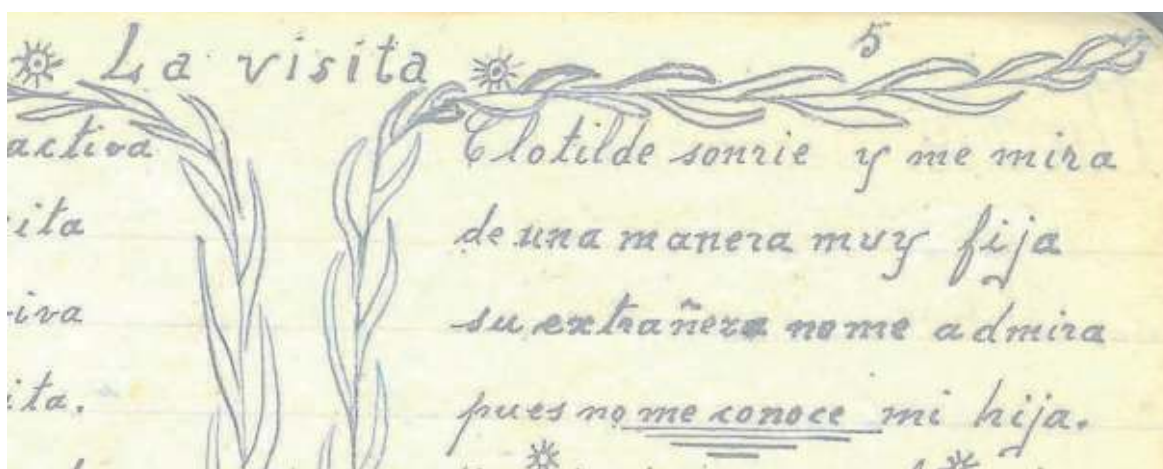 La visita
5
activa
ita
iva
ita.
Clotilde sonrie y me mira
de una manera muy fija
su extrañeza no me admira
pues no me conoce mi hija.